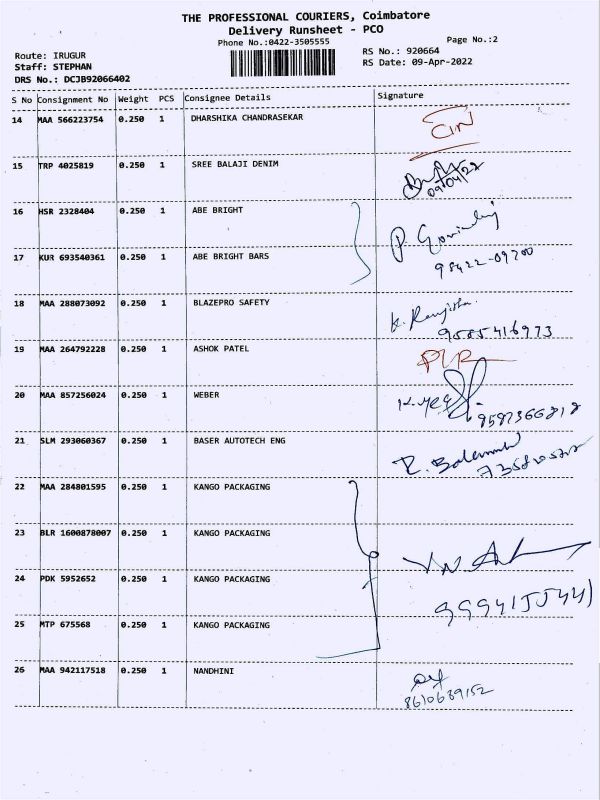 THE PROFESSIONAL COURIERS, Coimbatore
Delivery Runsheet - PCO
Phone No.:0422-3505555
Page No.:2
Route: IRUGUR
RS No.: 920664
Staff: STEPHAN
RS Date: 09-Apr-2022
DRS No.: DCJB92066402
S No Consignment No Weight PCS Consignee Details Signature
14 MAA 566223754 0.250 1 DHARSHIKA CHANDRASEKAR
15 TRP 4025819 0.250 1 SREE BALAJI DENIM
09/04/22
16 HSR 2328404 0.250 1 ABE BRIGHT
P. Govindaraj
17 KUR 693540361 0.250 1 ABE BRIGHT BARS
98422-09700
18 MAA 288073092 0.250 1 BLAZEPRO SAFETY
9585416973
19 MAA 264792228 0.250 1 ASHOK PATEL
20 MAA 857256024 0.250 1 WEBER
9587366818
21 SLM 293060367 0.250 1 BASER AUTOTECH ENG
22 MAA 284801595 0.250 1 KANGO PACKAGING
23 BLR 1600878007 0.250 1 KANGO PACKAGING
24 PDK 5952652 0.250 1 KANGO PACKAGING
9994155441
25 MTP 675568 0.250 1 KANGO PACKAGING
26 MAA 942117518 0.250 1 NANDHINI
8610639152